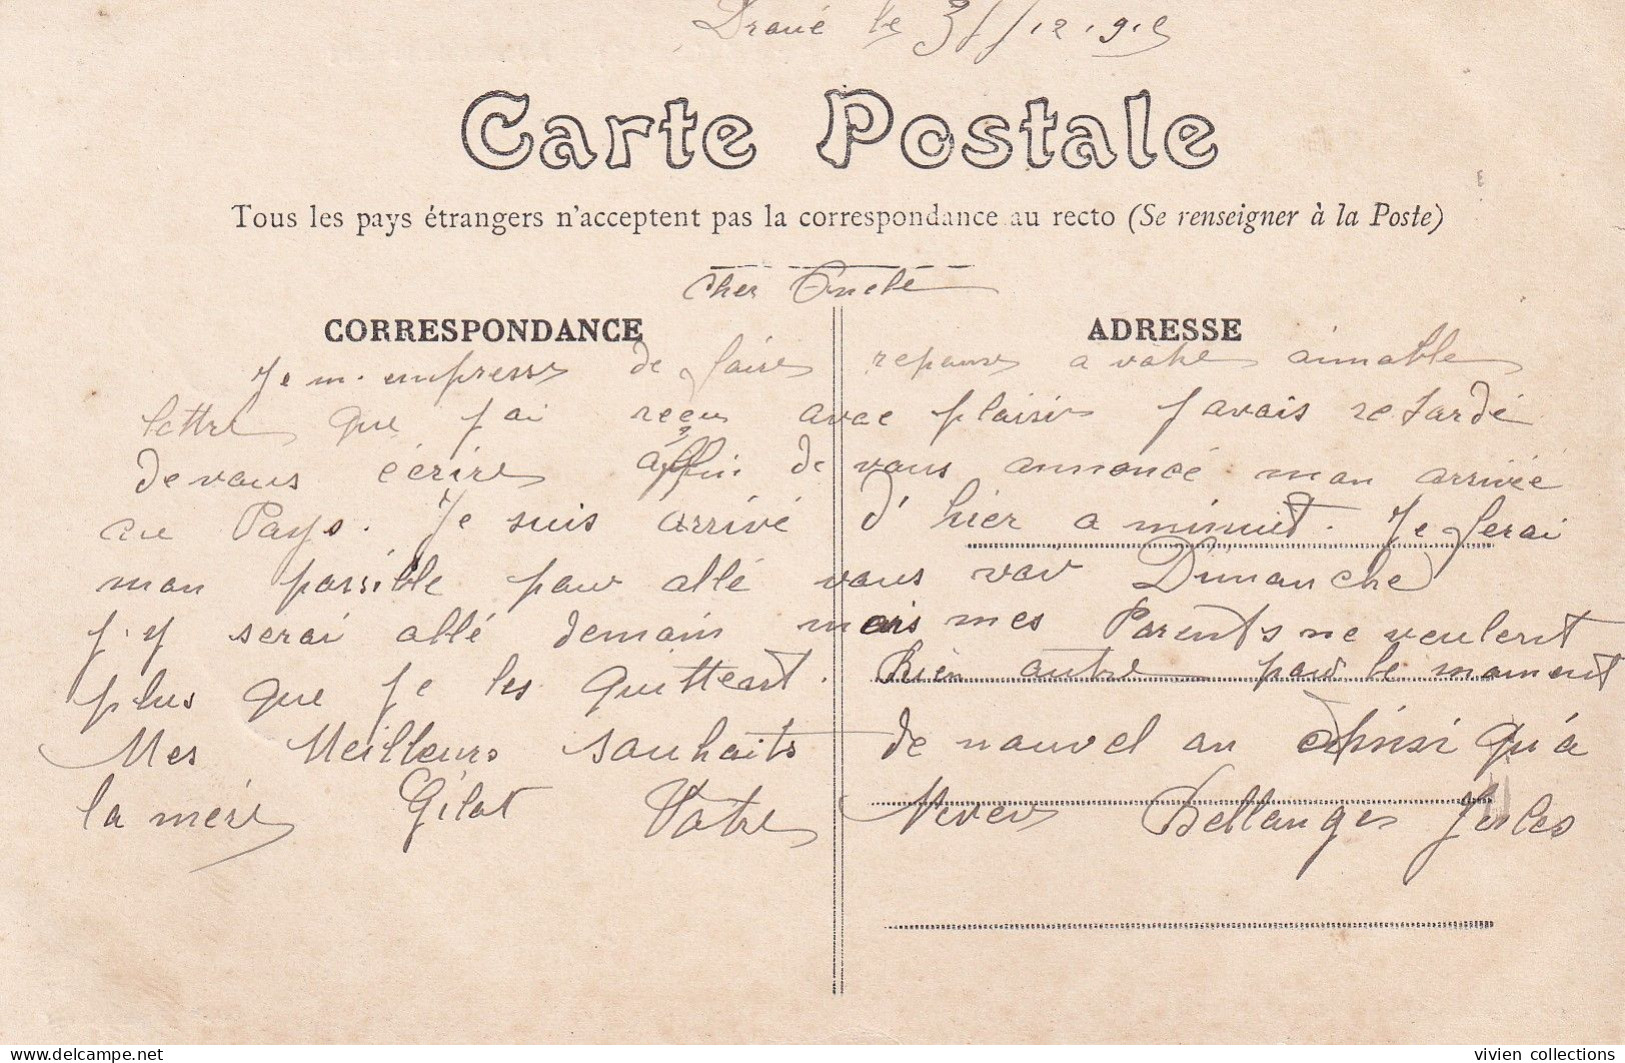 Droué le 31/12.9.5
Carte Postale
Tous les pays étrangers n'acceptent pas la correspondance au recto (Se renseigner à la Poste)
Cher Oncle
CORRESPONDANCE ADRESSE
Je m'empresse de faire repons a votre aimable
lettre que j'ai reçu avec plaisir j'avais retardé
de vous écrire affin de vous annoncé mon arrivée
au Pays. Je suis arrivé d'hier a minuit. Je ferai
mon possible pour allé vous voir Dimanche
j'y serai allé demain mais mes Parents ne veulent
plus que je les quitteat. Rien autre pour le moment
Mes Meilleurs souhaits de nouvel an Ainsi qu'à
la mère Gilot Votre Neveu Bellanger Jules
vivien collections